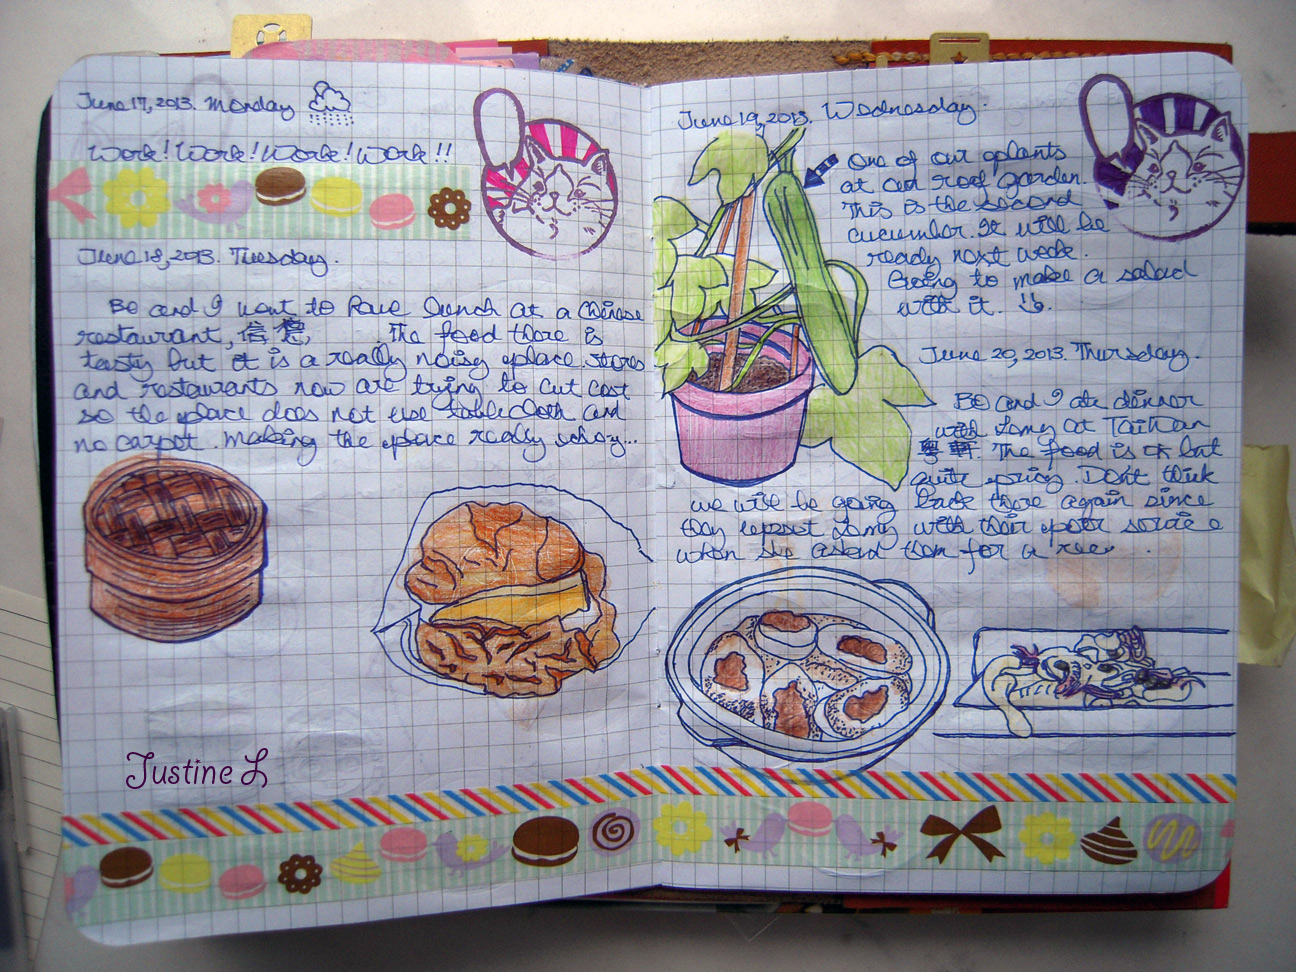 June 17, 2013. Monday
Work! Work! Work! Work!!
June 18, 2013. Tuesday.
BE and I went to have lunch at a Chinese
restaurant, 信德, The food there is
tasty but it is a really noisy place. Stores
and restaurants now are trying to cut cost
so the place does not use tablecloth and
no carpet. Making the place really echoy...
Justine L
June 19, 2013. Wednesday.
One of our plants
at our roof garden.
This is the second
cucumber. It will be
ready next week.
Going to make a salad
with it.
June 20, 2013. Thursday.
BE and I ate dinner
with Lmy at Taihan
粤軒 The food is ok but
quite pricy. Dont think
we will be going back there again since
they upset Lmy with their poor service
when she asked them for a